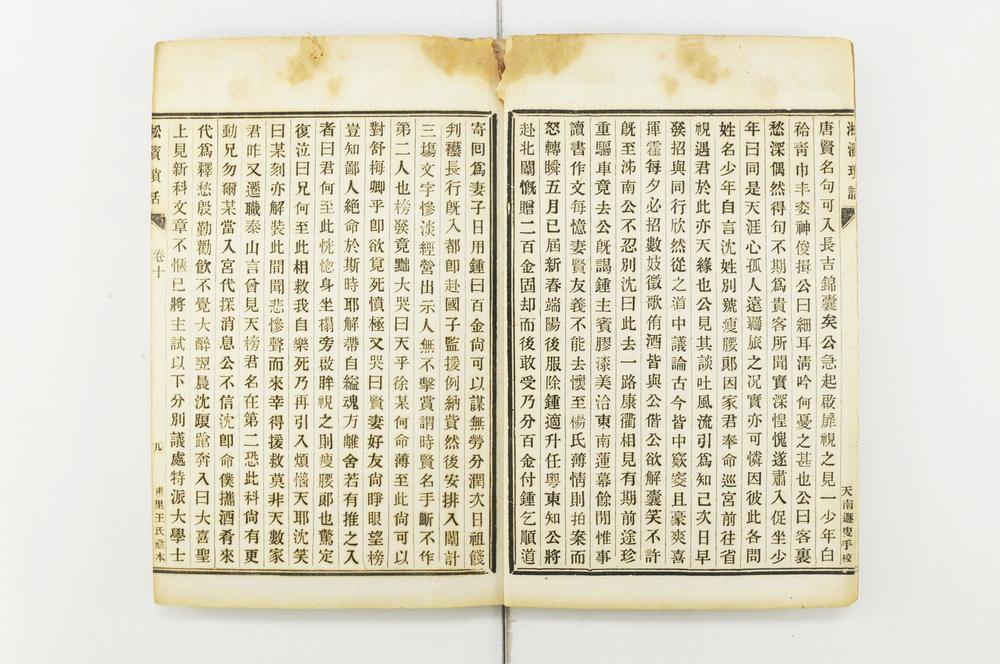 天南遯叟手校
唐賢名句可入長吉錦囊矣公急起啟扉視之見一少年白
袷靑巾丰姿神俊揖公曰細耳淸吟何憂之甚也公曰客裏
愁深偶然得句不期爲貴客所聞實深惶愧遂肅入促坐少
年曰同是天涯心孤人遠羈旅之況實亦可憐因彼此各問
姓名少年自言沈姓別號瘦腰郞因家君奉命巡宮前往省
視遇君於此亦天緣也公見其談吐風流引爲知己次日早
發招與同行欣然從之道中議論古今皆中窾窔且豪爽喜
揮霍每夕必招數妓徵歌侑酒皆與公偕公欲解囊笑不許
旣至泲南公不忍別沈曰此去一路康衢相見有期前途珍
重驅車竟去公旣謁鍾主賓膠漆美洽東南蓮幕餘閒惟事
讀書作文每憶妻賢友義不能去懷至楊氏薄情則拍案而
怒轉瞬五月已屆新春端陽後服除鍾適升任粵東知公將
赴北闈慨贈二百金固却而後敢受乃分百金付鍾乞順道
寄回爲妻子日用鍾曰百金尙可以謀無勞分潤次日祖餞
判襼長行旣入都卽赴國子監援例納貲然後安排入闈計
三塲文字慘淡經營出示人無不擊賞謂時賢名手斷不作
第二人也榜發竟黜大哭曰天乎徐某何命薄至此尙可以
對舒梅卿乎卽欲覓死憤極又哭曰賢妻好友尙睜眼望榜
豈知鄙人絶命於斯時耶解帶自縊魂方離舍若有推之入
者曰君何至此恍惚身坐榻旁啟眸視之則瘦腰郞也驚定
復泣曰兄何至此相救我自樂死乃再引入煩惱天耶沈笑
曰某刻亦解裝此間聞悲慘聲而來幸得援救莫非天數家
君昨又遷職泰山言曾見天榜君名在第二恐此科尙有更
動兄勿爾某當入宮代探消息公不信沈卽命僕攜酒肴來
代爲釋愁殷勤勸飲不覺大醉翌晨沈踉蹌奔入曰大喜聖
上見新科文章不愜已將主試以下分別議處特派大學士
淞濱瑣話
卷十
九
甫里王氏
本